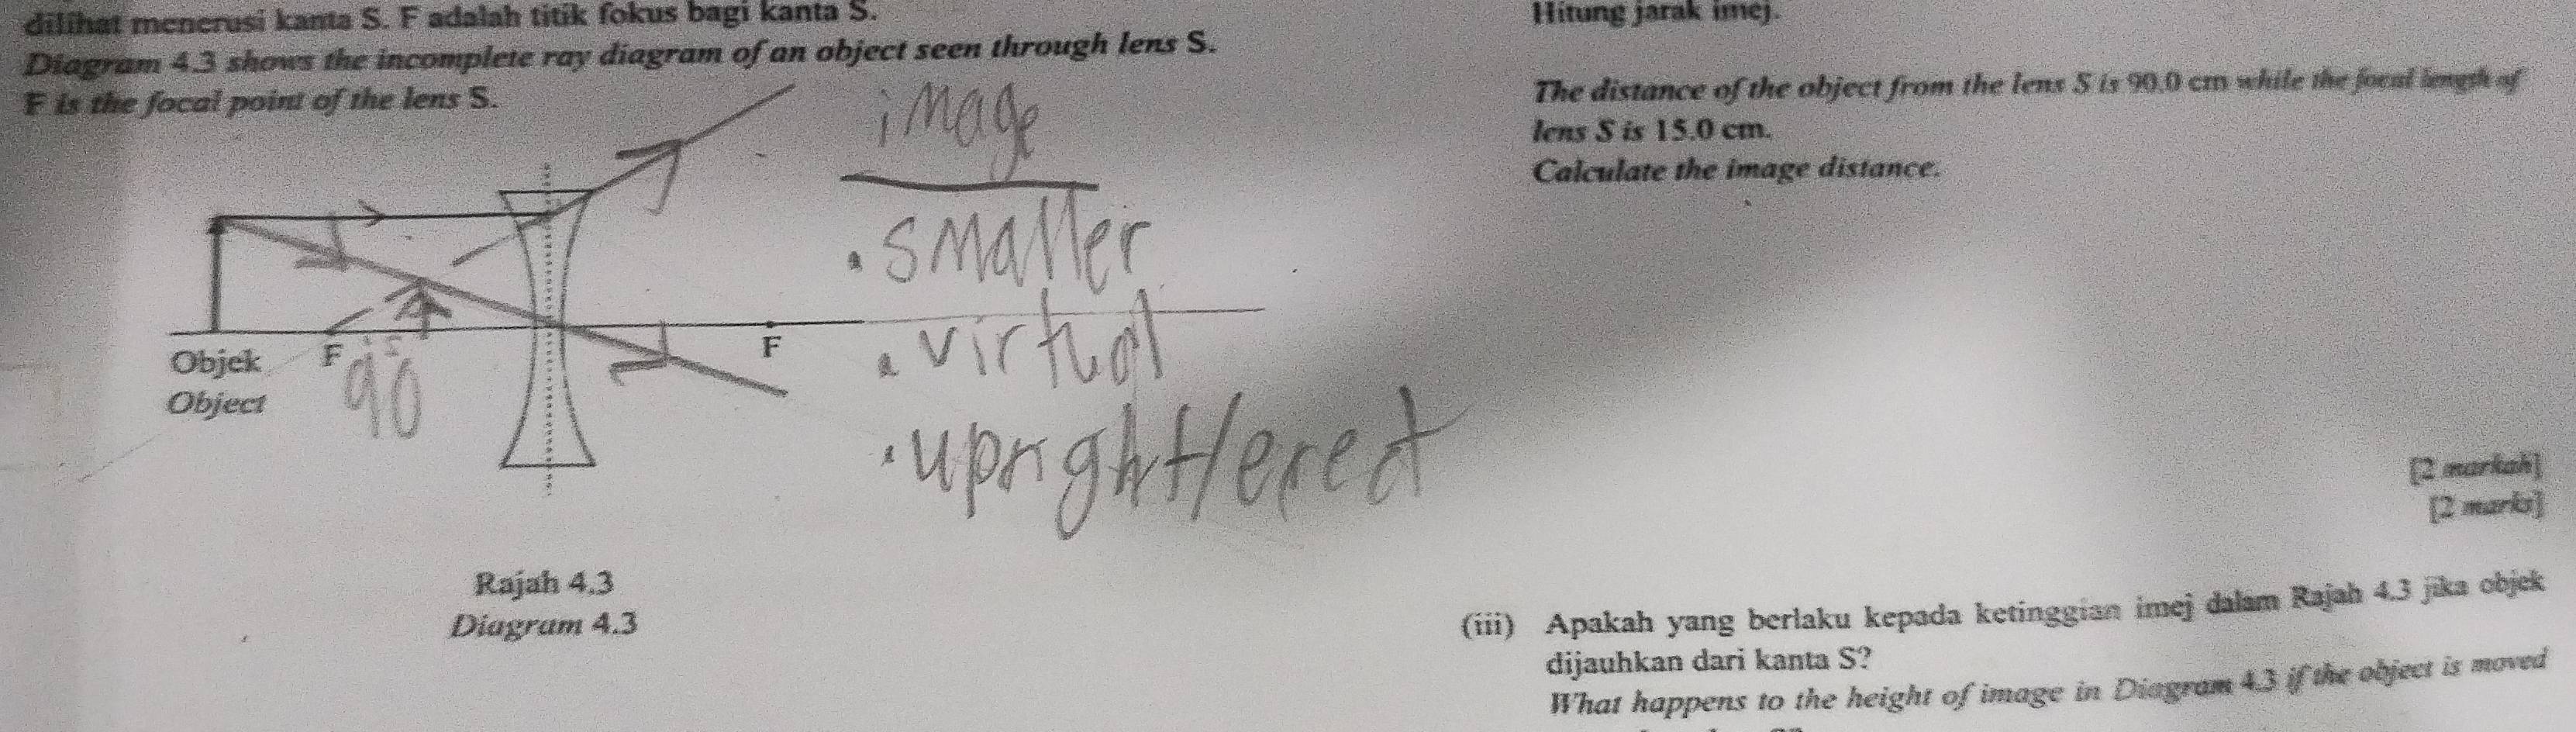 dilihat menerusi kanta S. F adalah titik fokus bagi kanta S.
Diagram 4.3 shows the incomplete ray diagram of an object seen through lens S.
F is the focal point of the lens S.
image
. smaller
. virtual
. upright/erect
Objek
Object
F
90
F
Rajah 4.3
Diagram 4.3
Hitung jarak imej.
The distance of the object from the lens S is 90.0 cm while the focal length of
lens S is 15.0 cm.
Calculate the image distance.
[2 markah]
[2 marks]
(iii) Apakah yang berlaku kepada ketinggian imej dalam Rajah 4.3 jika objek
dijauhkan dari kanta S?
What happens to the height of image in Diagram 4.3 if the object is moved